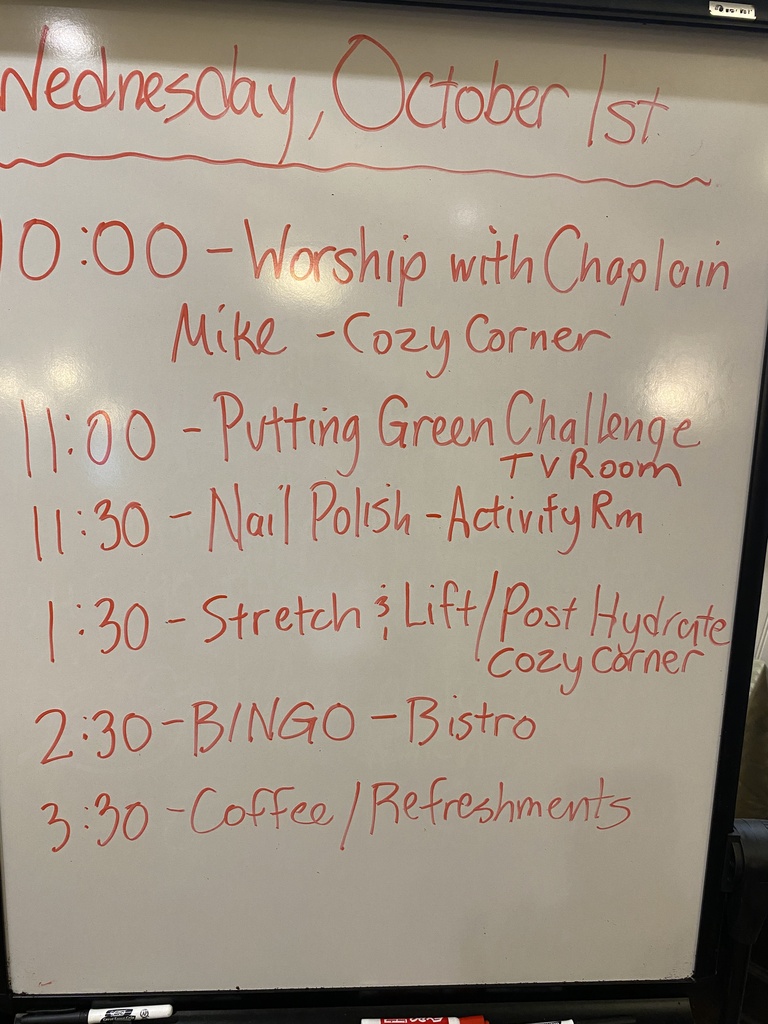 Wednesday, October 1st
10:00 - Worship with Chaplain
Mike - Cozy Corner
11:00 - Putting Green Challenge
TV Room
11:30 - Nail Polish - Activity Rm
1:30 - Stretch & Lift/Post Hydrate
Cozy Corner
2:30 - BINGO - Bistro
3:30 - Coffee/Refreshments